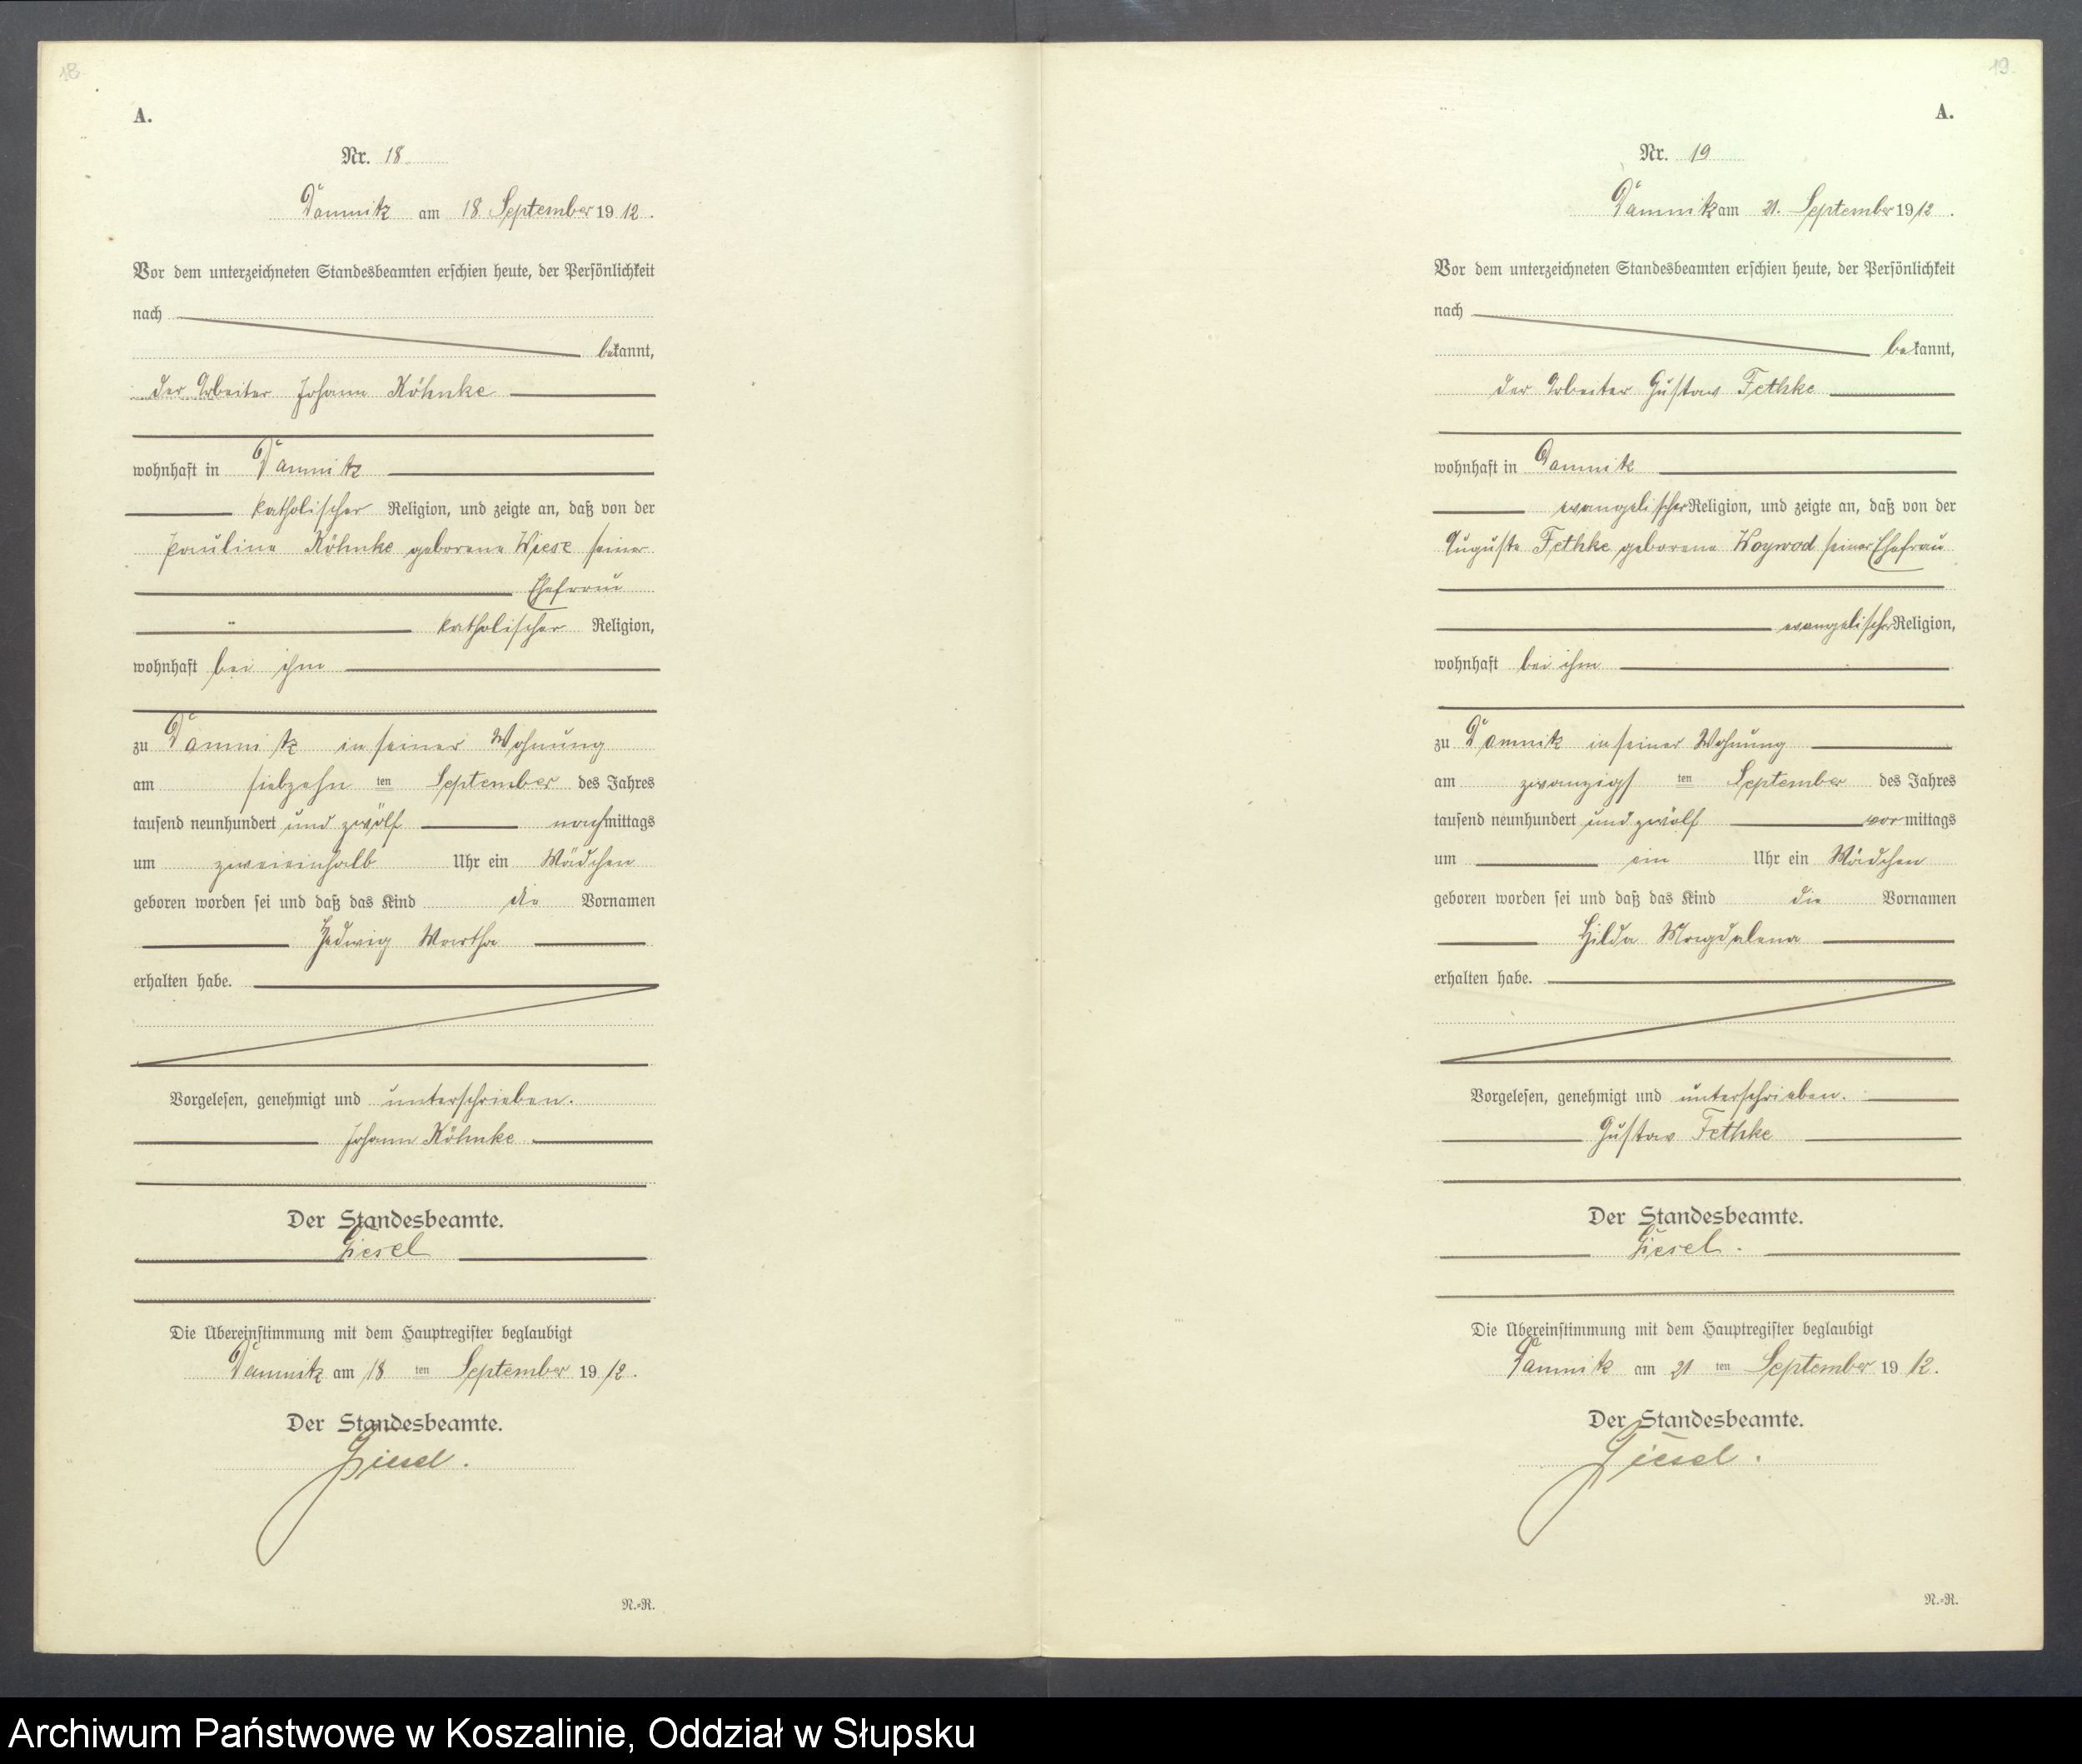 18
A.
Nr. 18.
Damnitz am 18. September 1912.
Vor dem unterzeichneten Standesbeamten erschien heute, der Persönlichkeit
nach
bekannt,
der Arbeiter Johann Köhnke
wohnhaft in Damnitz
katholischer Religion, und zeigte an, daß von der
Pauline Köhnke geborene Wiese seiner
Ehefrau
katholischer Religion,
wohnhaft bei ihm
zu Damnitz in seiner Wohnung
am siebzehn ten September des Jahres
tausend neunhundert und zwölf nachmittags
um zweieinhalb Uhr ein Mädchen
geboren worden sei und daß das Kind die Vornamen
Hedwig Martha
erhalten habe.
Vorgelesen, genehmigt und unterschrieben.
Johann Köhnke
Der Standesbeamte.
Giesel
Die Übereinstimmung mit dem Hauptregister beglaubigt
Damnitz am 18 ten September 1912.
Der Standesbeamte.
Giesel.
N.-R.
19.
A.
Nr. 19
Damnitz am 21. September 1912.
Vor dem unterzeichneten Standesbeamten erschien heute, der Persönlichkeit
nach
bekannt,
der Arbeiter Gustav Fethke
wohnhaft in Damnitz
evangelischer Religion, und zeigte an, daß von der
Auguste Fethke geborene Woywod seiner Ehefrau
evangelischer Religion,
wohnhaft bei ihm
zu Damnitz in seiner Wohnung
am zwanzigs ten September des Jahres
tausend neunhundert und zwölf vormittags
um ein Uhr ein Mädchen
geboren worden sei und daß das Kind die Vornamen
Hilda Magdalena
erhalten habe.
Vorgelesen, genehmigt und unterschrieben.
Gustav Fethke
Der Standesbeamte.
Giesel.
Die Übereinstimmung mit dem Hauptregister beglaubigt
Damnitz am 21 ten September 1912.
Der Standesbeamte.
Giesel.
N.-R.
Archiwum Państwowe w Koszalinie, Oddział w Słupsku